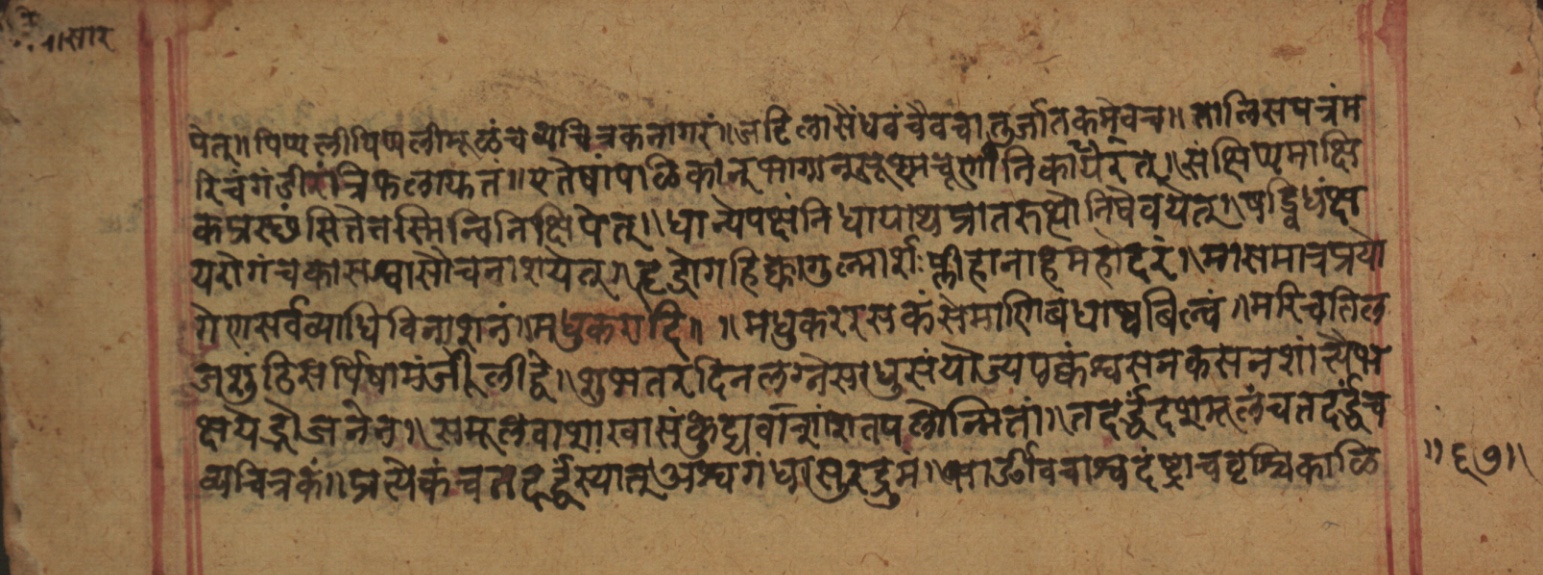 ॥सार
पेत्॥पिप्पलीपिप्पलीमूळंचव्यचित्रकनागरं॥जटिलासैंधवंचैवंचातुर्जातकमेवच॥तालिसपत्रंम
रिचंगंडीरंत्रिफलायनं॥एतेषांपळिकान्भागान्सूक्ष्मचूर्णानिकारयेत्॥संक्षिप्यमाक्षि
कप्रस्छंसितेतस्मिन्विनिक्षिपेत्॥धान्यपक्षंनिधायाथप्रातरुत्थौनिषेवयेत्॥षड्विधंक्ष
यरोगंचकासश्वासौचनाशयेत्॥हृद्रोगहिक्कागुल्मार्शःप्लीहानाहमहोदरं॥मासमात्रप्रयो
गेणसर्वव्याधिविनाशनं॥मधुक॥॥मधुकररसकंसमाणिबधाश्वबिल्वं॥मरिचतिल
जशुंठिसर्पिषामंजीलीढ्वे॥शुभतरदिनलग्नेसाधुसंयोज्यपक्वंश्वसनकसनशांत्यैभ
क्षयेद्भोजनेन॥समूलवाशाखासंकुट्यर्वांशांशतपलोन्मितां॥तदर्द्धंदशमूलंचतदर्द्धंच
व्यचित्रकं॥प्रत्येकंचतदर्द्धंस्यात्अश्वगंधासुरद्रुमं॥भार्ङीवचाश्वदंष्ट्राचवृश्चिकाळि
॥६७॥